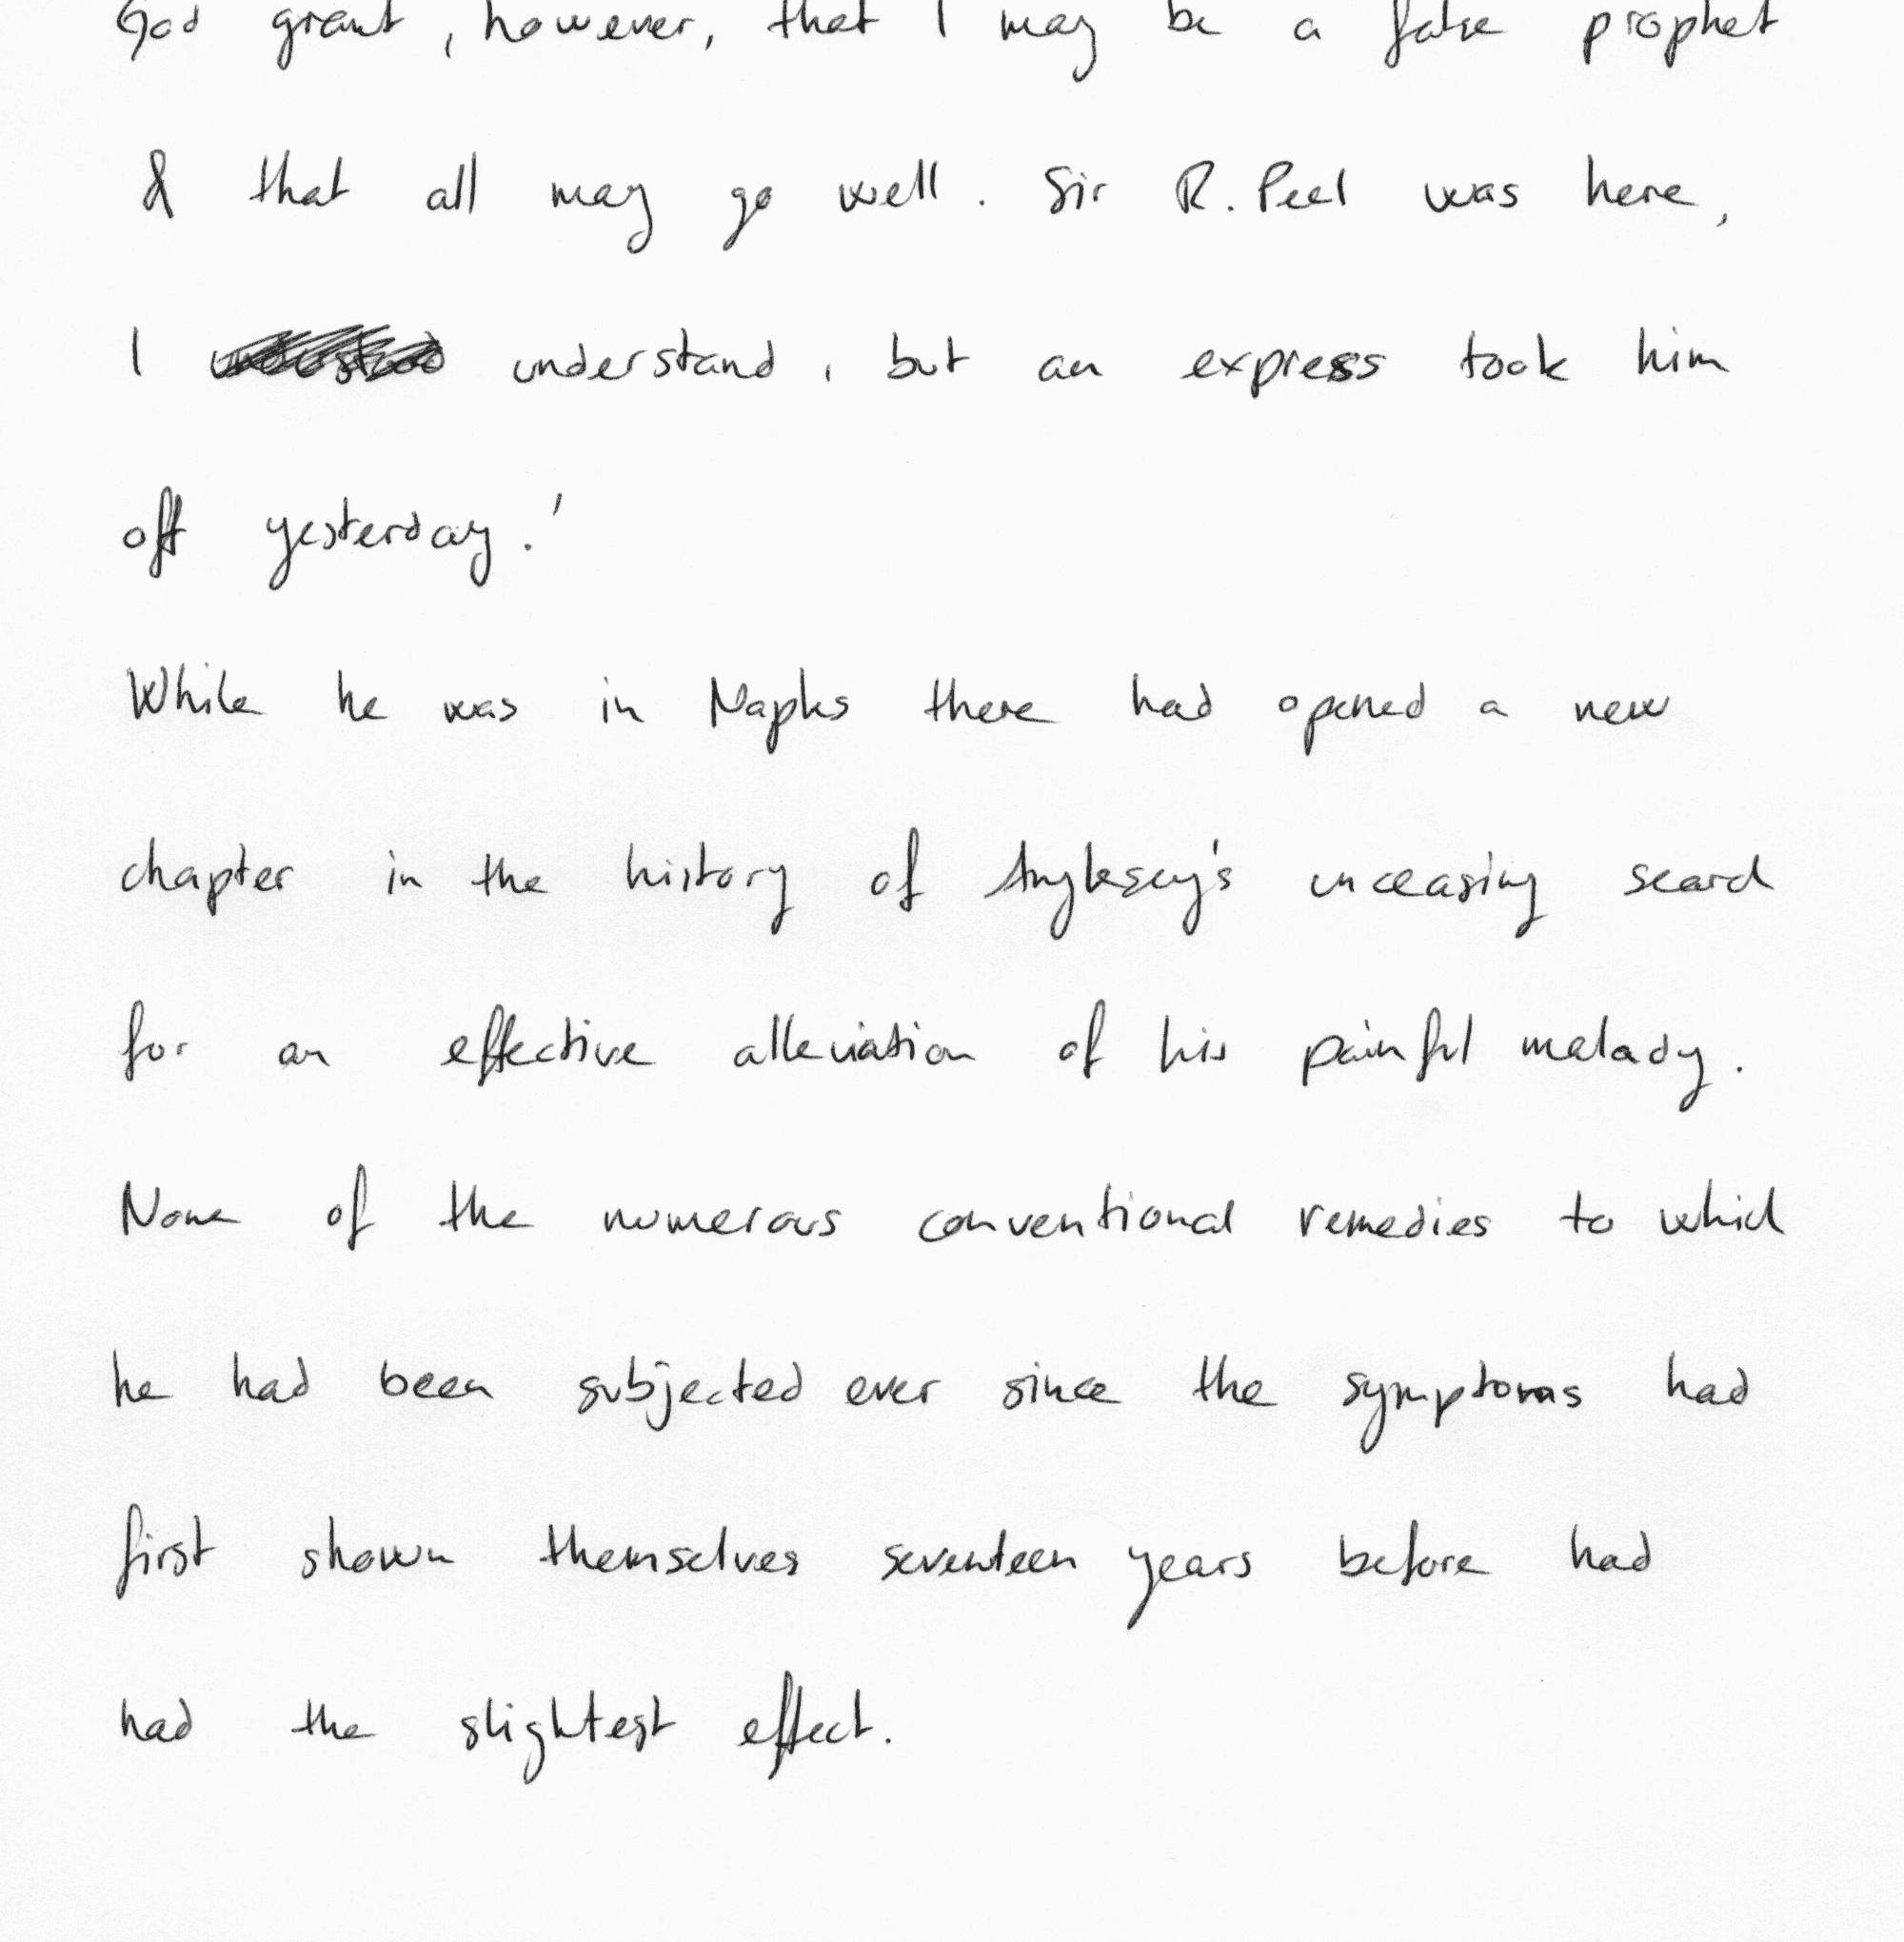 God grant, however, that I may be a false prophet
& that all may go well. Sir R. Peel was here,
I understand, but an express took him
off yesterday.'
While he was in Naples there had opened a new
chapter in the history of Anglesey's unceasing search
for an effective alleviation of his painful malady.
None of the numerous conventional remedies to which
he had been subjected ever since the symptoms had
first shown themselves seventeen years before had
had the slightest effect.